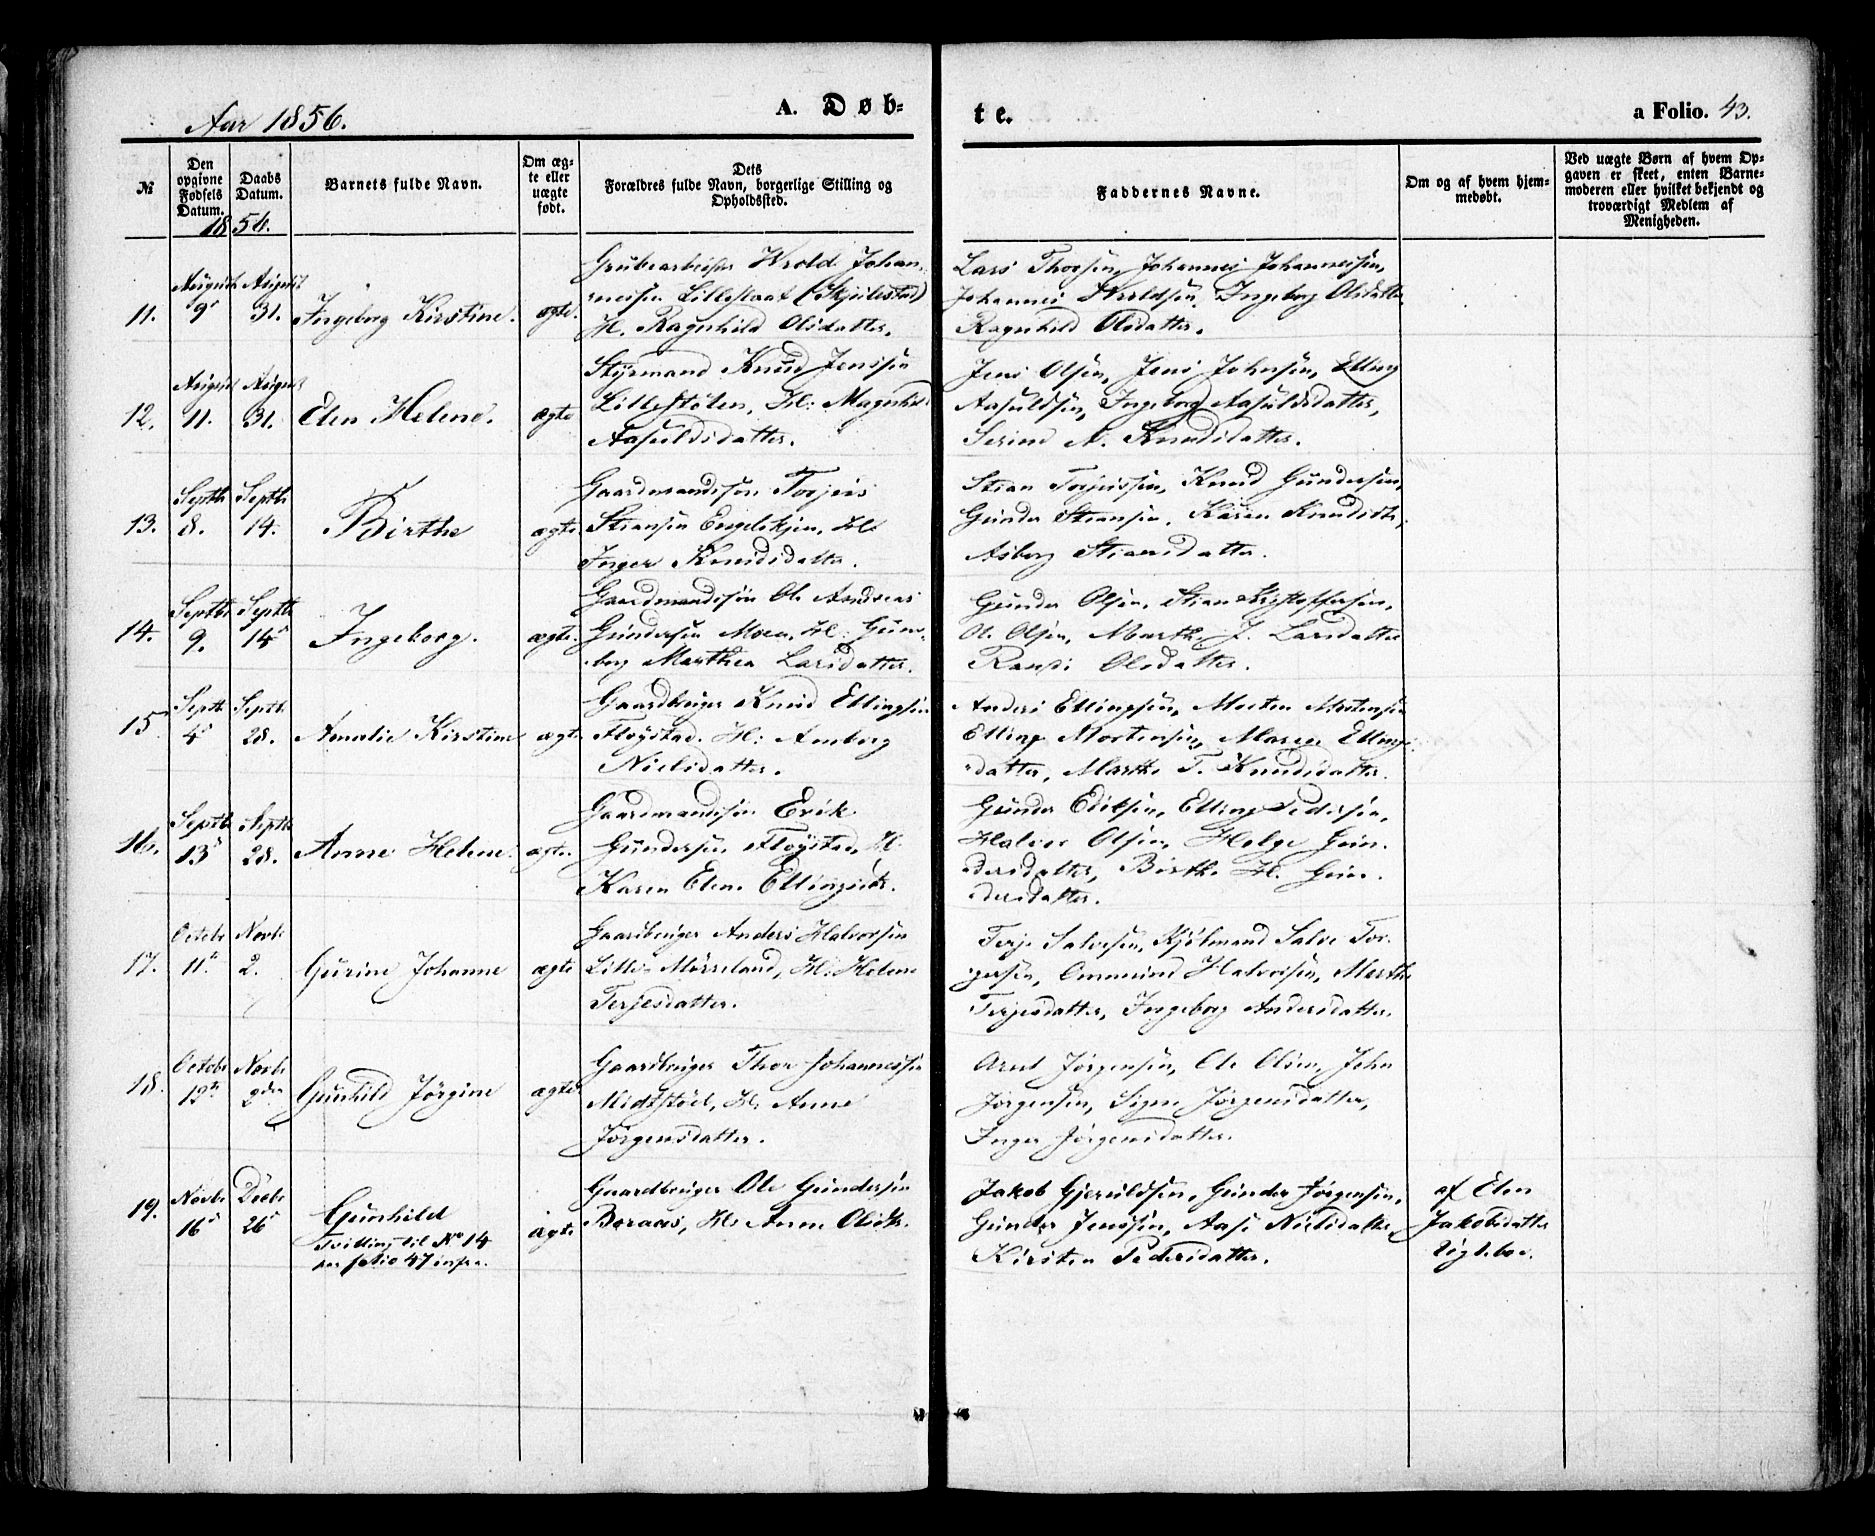 Aar 1856.
A. Døb-
te.
a Folio. 43.
№
Den opgivne Fødsels Datum.
Daabs Datum.
1856.
Barnets fulde Navn.
Om æg-
te eller
uægte
født.
Dets
Forældres fulde Navn, borgerlige Stilling og
Opholdssted.
Faddernes Navne.
Om og af hvem hjem-
medøbt.
Ved uægte Børn af hvem Op-
gaven er skeet, enten Barne-
moderen eller hvilket bekjendt og
troværdigt Medlem af
Menigheden.
11.
August 9
August 31.
Ingeborg Kirstine.
ægte.
Grubearbeider Wrold Johan-
nessen Lillestaat (Skjulestad)
H. Ragnhild Olsdatter.
Lars Thorsen, Johannes Johannessen,
Johannes Wroldsen, Ingeborg Olsdatter
Ragnhild Olsdatter.
12.
August 11.
August 31.
Elen Helene.
ægte
Styrmand Knud Jenssen
Lillestølen, H: Magnhild
Aasuldsdatter.
Jens Olsen, Jens Johnsen, Elling
Aasuldsen, Ingeborg Aasuldsdatter,
Serine N. Knudsdatter.
13.
Septbr 8.
Septbr 14.
Birthe
ægte.
Gaardmandssøn Torjus
Stiansen Engelskjøn, H.
Inger Knudsdatter.
Stian Torjussen, Knud Gundersen,
Gunder Stiansen, Karen Knudsdtr.
Asborg Stiansdatter.
14.
Septbr 9.
Septbr 14
Ingeborg.
ægte.
Gaardmandssøn Ole Andreas
Gundersen Moen, H: Gun-
borg Marthea Larsdatter.
Gunder Olsen, Stian Kristoffersen,
O. Olsen, Marthe J. Larsdatter
Olsdatter.
15
Septbr 4
Septbr 28.
Amalie Kirstine
ægte
Gaardbruger Knud Ellingsen
Fløystad. H: Amborg
Nielsdatter.
Anders Ellingsen, Morten Mortensen
Elling Mortensen, Maren Ellings-
datter, Marthe T. Knudsdatter.
16.
Septbr 13
Septbr 28.
Anne Helene.
ægte.
Gaardmandssøn Erik
Gundersen Fløystad, H.
Karen Elene Ellingsdtr.
Gunder Eriksen, Elling Pedersen,
Halvor Olsen, Helge Gun-
dersdatter, Birthe H. Gun-
dersdatter.
17.
Octobr 11te
Novbr 2.
Gurine Johanne
ægte
Gaardbruger Anders Halvorsen
Lille Mørseland, H: Helene
Terjesdatter.
Terje Salvesen, Kjølmand Salve Tor-
gersen, Ommund Halvorsen, Marthe
Terjesdatter, Ingeborg Andersdatter.
18.
Octobr 19te
Novbr 2den
Gunhild Jørgine
ægte
Gaardbruger Thor Johannessen
Midtstøel, H. Anne
Jørgensdatter.
Arnt Jørgensen, Ole Olsen, John
Jørgensen, Signe Jørgensdatter,
Inger Jørgensdatter.
19.
Novbr 16
Decbr 26
Gunhild
Tvilling til No 14
paa folio 47 infra.
ægte
Gaardbruger Ole Gundersen
Boraas, H: Anne Olsdtr.
Jakob Gjeruldsen, Gunder Jørgensen,
Gunder Jenssen, Aase Nielsdatter
Kirsten Pedersdatter.
af Elen
Jakobsdatter